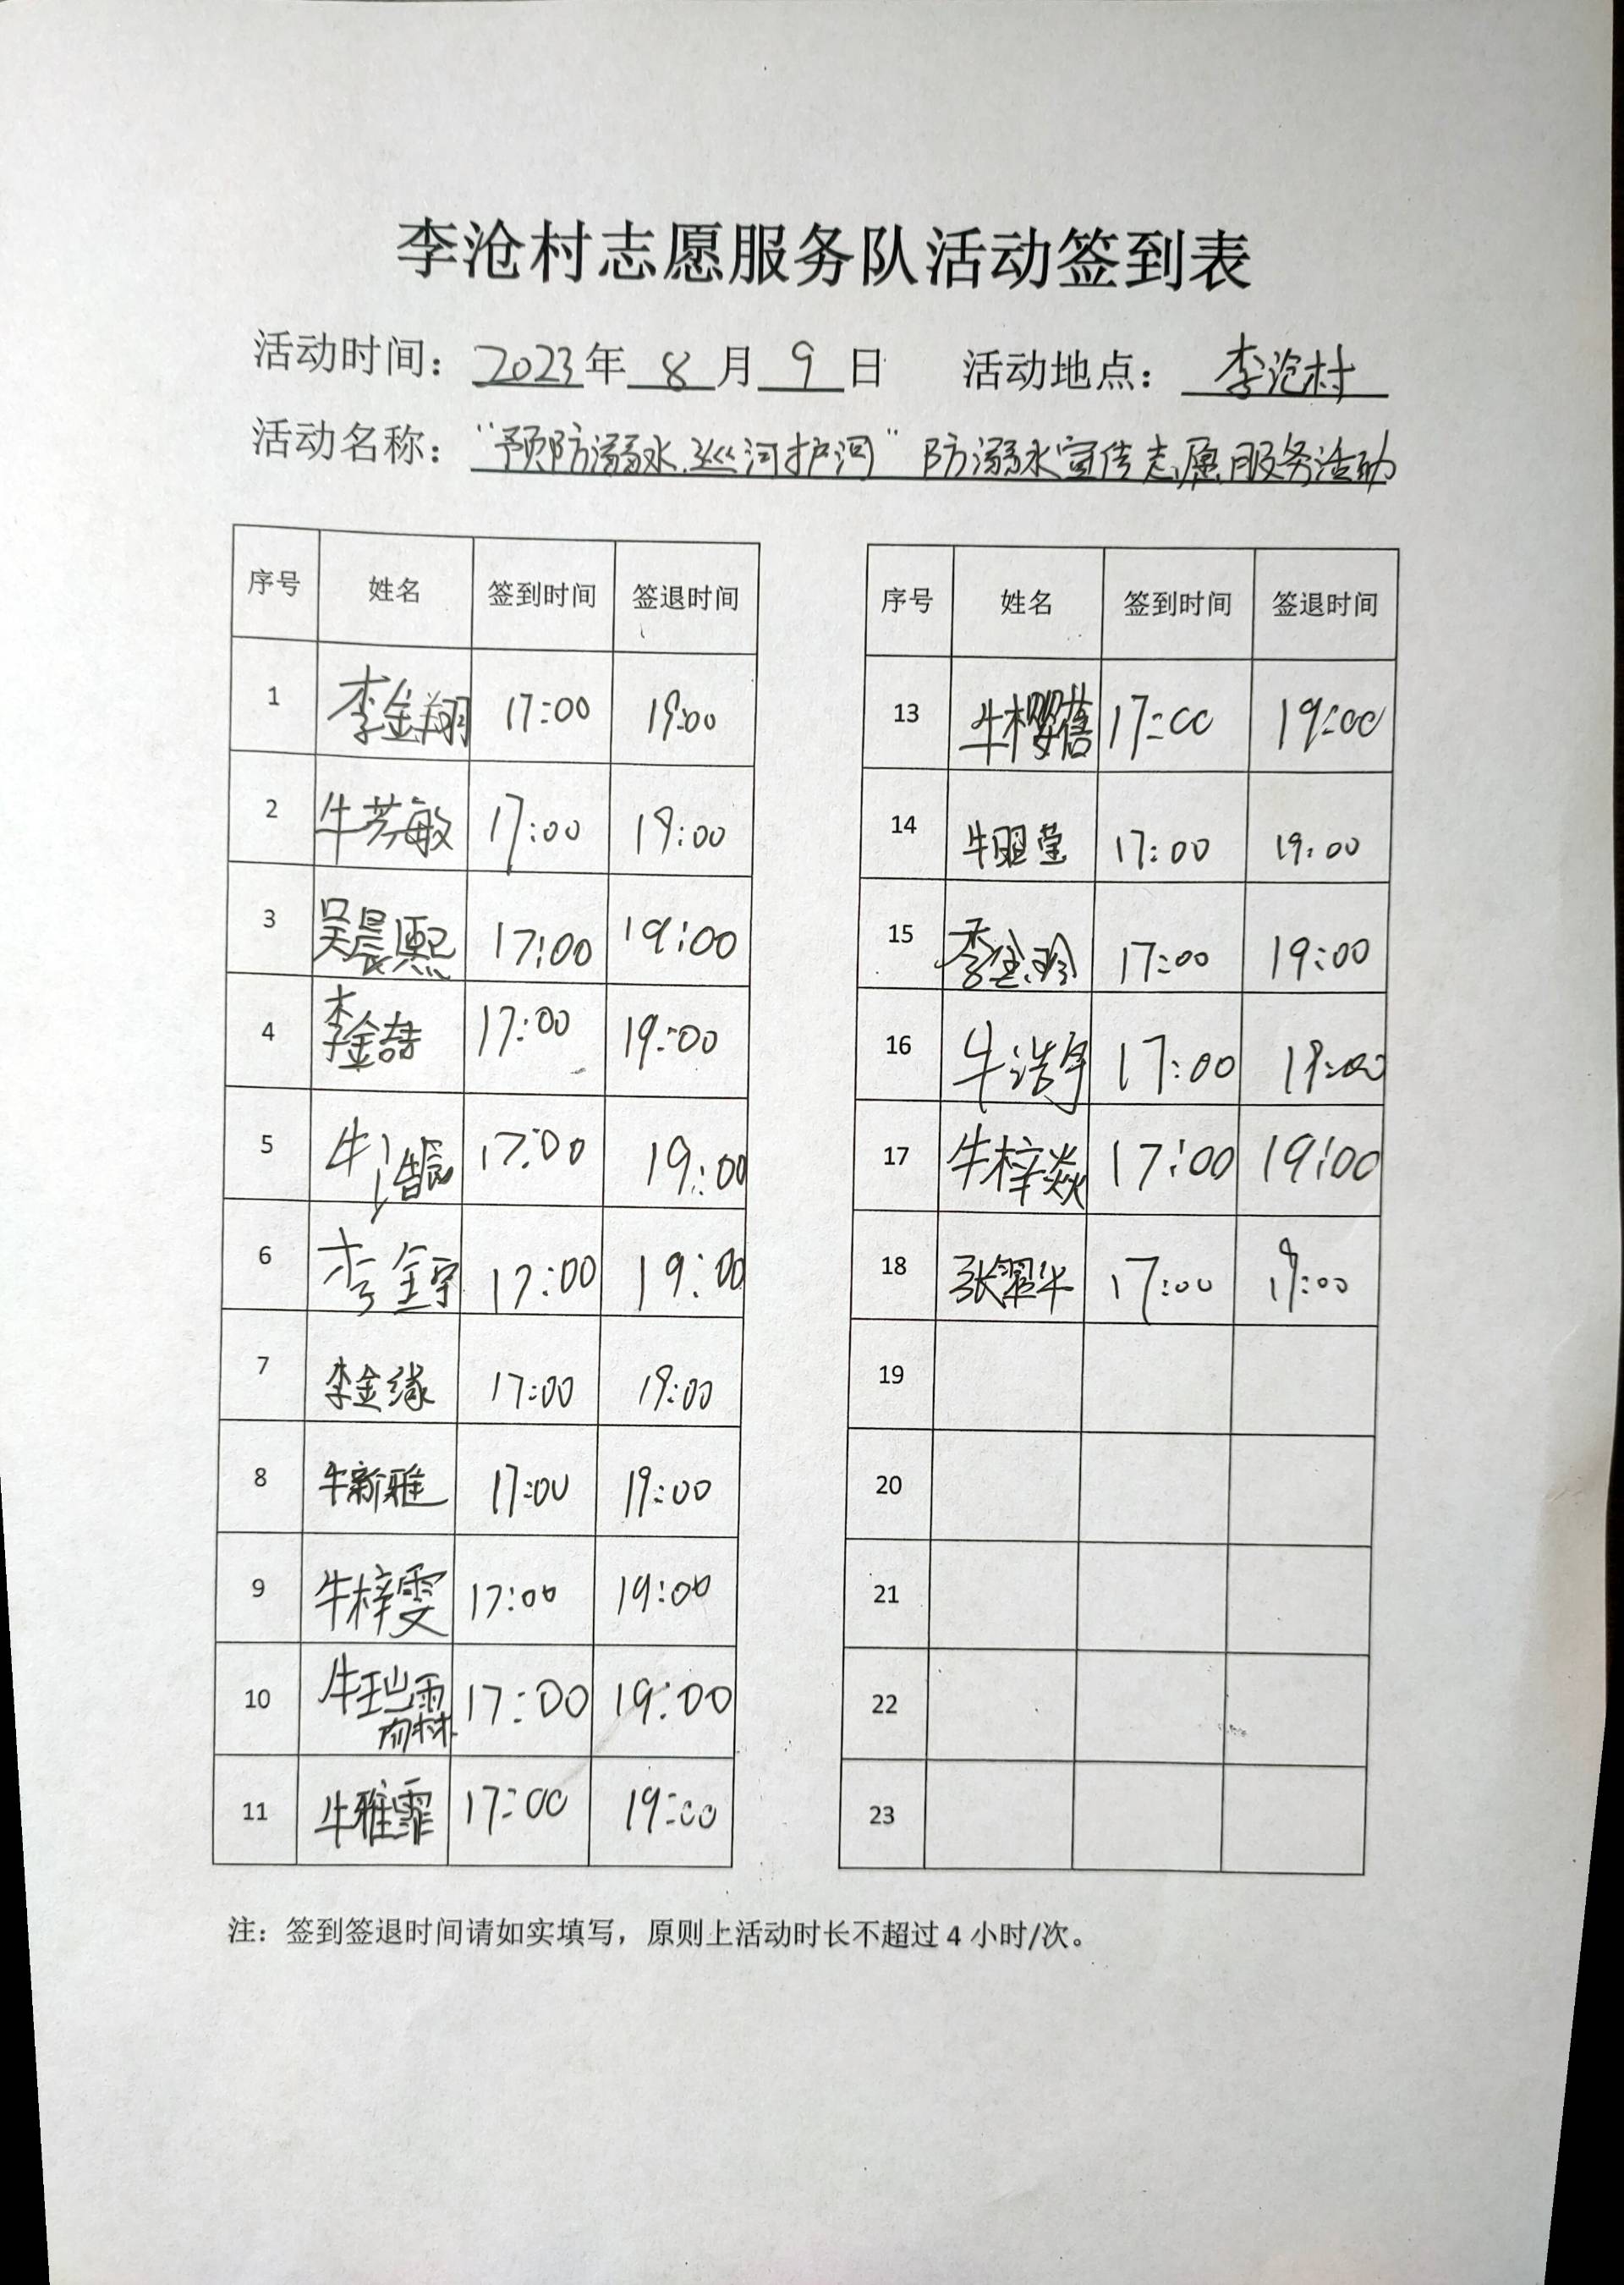 李沧村志愿服务队活动签到表
活动时间：2023年 8 月 9 日 活动地点：李沧村
活动名称："预防溺水.巡河护河"防溺水宣传志愿服务活动
序号 姓名 签到时间 签退时间
1 李金翔 17:00 19:00
2 牛芳敏 17:00 19:00
3 吴晨熙 17:00 19:00
4 李金喆 17:00 19:00
5 牛 17:00 19:00
6 李金宇 17:00 19:00
7 李金缘 17:00 19:00
8 牛新雅 17:00 19:00
9 牛梓雯 17:00 19:00
10 牛 17:00 19:00
11 牛雅霏 17:00 19:00
序号 姓名 签到时间 签退时间
13 牛樱蓓 17:00 19:00
14 牛 17:00 19:00
15 李金玲 17:00 19:00
16 牛浩宇 17:00 19:00
17 牛梓焱 17:00 19:00
18 张 17:00 19:00
19
20
21
22
23
注：签到签退时间请如实填写，原则上活动时长不超过 4 小时/次。